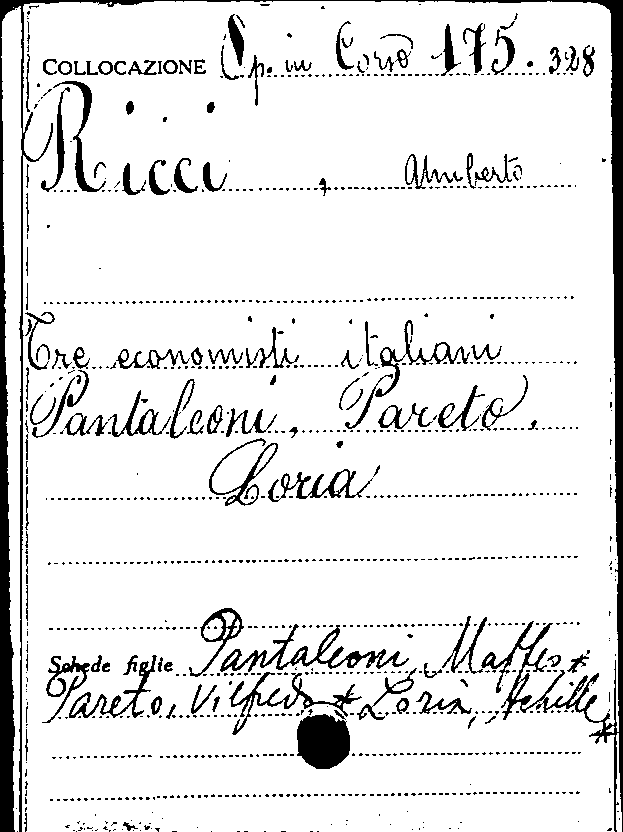 COLLOCAZIONE Sp. in Corso 175.328
Ricci, Umberto
Tre economisti italiani
Pantaleoni, Pareto,
Loria
Schede figlie Pantaleoni, Maffeo *
Pareto, Vilfredo * Loria, Achille *